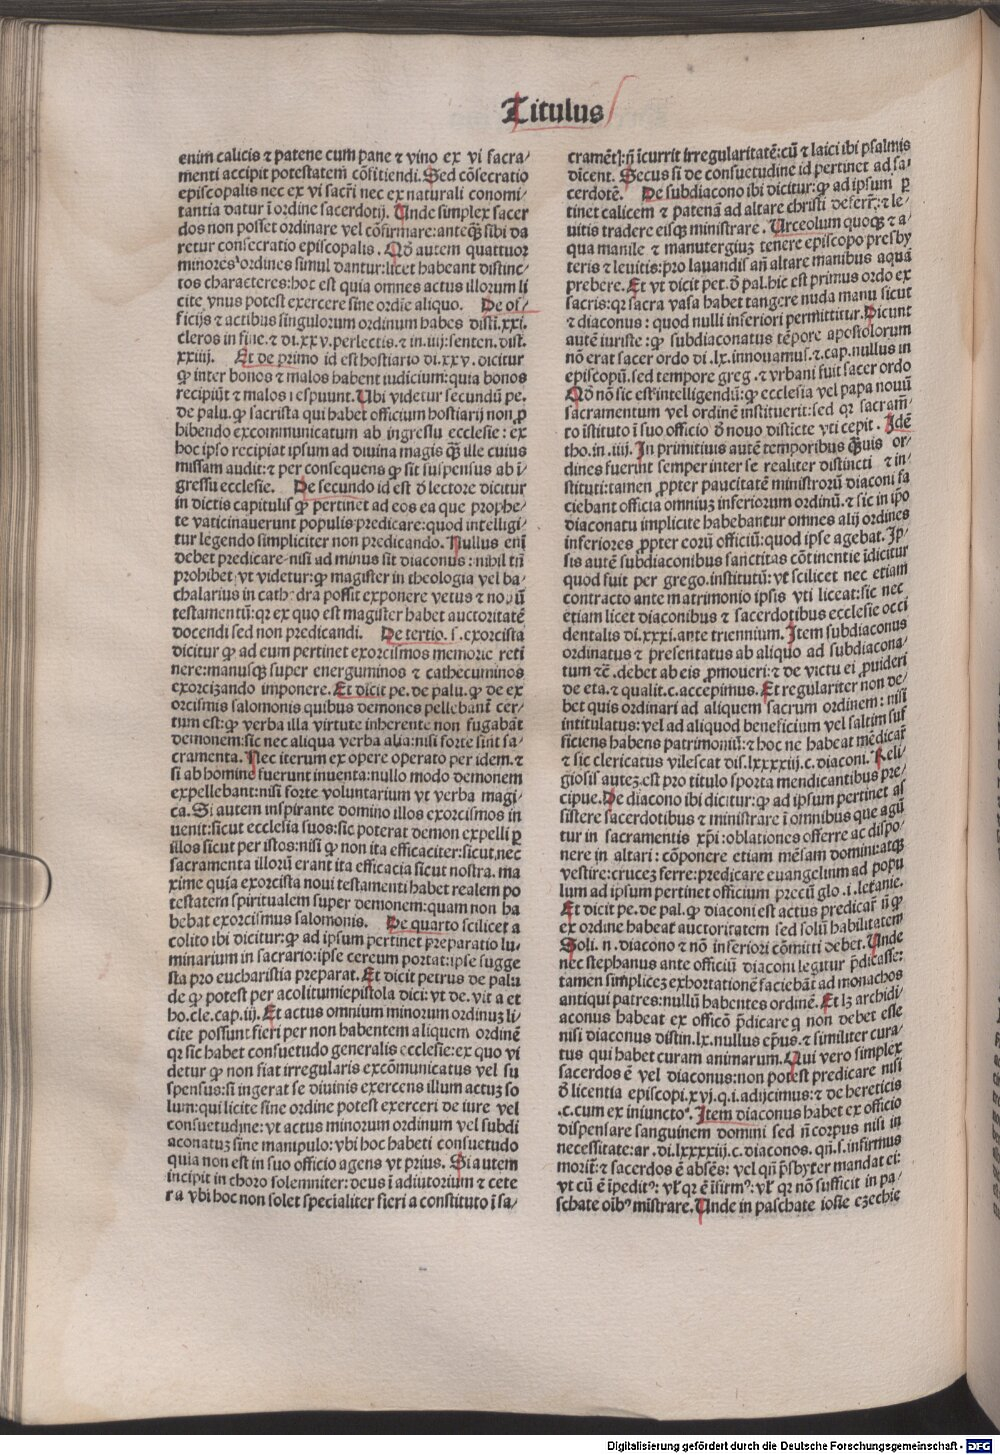 Titulus
enim calicis ⁊ patene cum pane ⁊ vino ex vi sacra⸗
menti accipit potestatem cōfitiendi. Sed cōsecratio
episcopalis nec ex vi sacr̄i nec ex naturali conomi⸗
tantia datur ī ordine sacerdotij. Unde simplex sacer
dos non posset ordinare vel cōfirmare: anteqȝ sibi da
retur consecratio episcopalis. Qd̄ autem quattuor
minores ordines simul dantur: licet habeant distinc⸗
tos characteres: hoc est quia omnes actus illorum li
cite vnus potest exercere sine ordīe aliquo. De of⸗
ficijs ⁊ actibus singulorum ordinum habes disti.xxi.
cleros in fine.⁊ di.xxv.perlectis.⁊ in.iiij.senten.dist.
xxiiij. Et de primo id est hostiario di.xxv.dicitur
ꝙ inter bonos ⁊ malos habent iudicium: quia bonos
recipiūt ⁊ malos respuunt. Ubi videtur secundū pe.
de palu.ꝙ sacrista qui habet officium hostiarij non ꝓ
hibendo excommunicatum ab ingressu ecclesie: ex
hoc ipso recipiat ipsum ad diuina magis qȝ̄ ille cuius
missam audit: ⁊ per consequens ꝙ sit suspensus ab ī⸗
gressu ecclesie. De secundo id est d̄ lectore dicitur
in dictis capitulis ꝙ pertinet ad eos ea que prophe⸗
te vaticinauerunt populis predicare: quod intelligi⸗
tur legendo simpliciter non predicando. Nullus eni
debet predicare nisi ad minus sit diaconus: nihil tn̄
prohibet vt videtur: ꝙ magister in theologia vel ba⸗
chalarius in cathedra possit exponere vetus ⁊ nouū
testamentū: qr ex quo est magister habet auctoritatē
docendi sed non predicandi. De tertio. s. exorcista
dicitur ꝙ ad eum pertinet exorcismos memorie reti
nere: manusqȝ super energuminos ⁊ cathecuminos
exorcizando imponere. Et dicit pe.de palu.ꝙ de ex
orcismis salomonis quibus demones pellebant cer⸗
tum est: ꝙ verba illa virtute inherente non fugabāt
demonem: sic nec aliqua verba alia: nisi forte sint sa⸗
cramenta. Nec iterum ex opere operato per idem.⁊
si ab homine fuerunt inuenta: nullo modo demonem
expellebant: nisi forte voluntarium vt verba magi⸗
ca. Si autem inspirante domino illos exorcismos in
uenit: sicut ecclesia suos: sic poterat demon expelli ꝑ
illos sicut per istos: nisi ꝙ non ita efficaciter: sicut nec
sacramenta illorū erant ita efficacia sicut nostra. ma
xime quia exorcista noui testamenti habet realem po
testatem spiritualem super demonem: quam non ha
bebat exorcismus salomonis. De quarto scilicet a
colito ibi dicitur: ꝙ ad ipsum pertinet preparatio lu⸗
minarium in sacrario: ipse cereum portat: ipse sugge
sta pro eucharistia preparat. Et dicit petrus de palu
de ꝙ potest per acolitum epistola dici: vt de. vit a et
ho.cle.cap.iij. Et actus omnium minorum ordinuȝ li⸗
cite possunt fieri per non habentem aliquem ordinē
qr sic habet consuetudo generalis ecclesie: ex quo vi
detur ꝙ non fiat irregularis excōmunicatus vel su
spensus: si ingerat se diuinis exercens illum actuȝ so
lum: qui licite sine ordine potest exerceri de iure vel
consuetudine: vt actus minorum ordinum vel subdi
aconatuȝ sine manipulo: vbi hoc habeti consuetudo
quia non est in suo officio agens vt prius. Si autem
incipit in choro solemniter: deus ī adiutorium ⁊ cete
ra vbi hoc non solet specialiter fieri a constituto ī sa⸗
cramēt]: n̄ īcurrit irregularitatē: cū ⁊ laici ibi psalmis
dicent. Secus si de consuetudine id pertinet ad sa⸗
cerdotē. De subdiacono ibi dicitur: ꝙ ad ipsum ꝑ
tinet calicem ⁊ patenā ad altare christi deferr̄: ⁊ le⸗
uitis tradere eisqȝ ministrare. Urceolum quoqȝ ⁊ a⸗
qua manile ⁊ manutergiuȝ tenere episcopo presby
teris ⁊ leuitis: pro lauandis an̄ altare manibus aquā
prebere. Et vt dicit pet.d̄ pal.hic est primus ordo ex
sacris: qr sacra vasa habet tangere nuda manu sicut
⁊ diaconus: quod nulli inferiori permittitur. Dicunt
autē iuriste: ꝙ subdiaconatus tēpore apostolorum
nō erat sacer ordo di.lx.innouamus.⁊.cap.nullus in
episcopū. sed tempore greg.⁊ vrbani fuit sacer ordo
Qd̄ nō sic est intelligendū: ꝙ ecclesia vel papa nouū
sacramentum vel ordinē instituerit: sed qr sacram̄⸗
to īstituto ī suo officio d̄ nouo disticte vti cepit. Idē
tho.in.iiij. In primitiua autē temporibus qȝ̄uis or⸗
dines fuerint semper inter se realiter distincti ⁊ in⸗
stituti: tamen ꝓpter paucitatē ministrorū diaconi fa
ciebant officia omniuȝ inferiorum ordinū.⁊ sic in ip̄o
diaconatu implicite habebantur omnes alij ordines
inferiores ꝓpter eorū officiū: quod ipse agebat. Ip⸗
sis autē subdiaconibus sanctitas cōtinentie īdicitur
quod fuit per grego.institutū: vt scilicet nec etiam
contracto ante matrimonio ipsis vti liceat: sic nec
etiam licet diaconibus ⁊ sacerdotibus ecclesie occi
dentalis di.xxxi.ante triennium. Item subdiaconus
ordinatus ⁊ presentatus ab aliquo ad subdiacona⸗
tum ⁊c̄.debet ab eis ꝓmoueri: ⁊ de victu ei ꝓuideri
de eta.⁊ qualit.c.accepimus. Et regulariter non de⸗
bet quis ordinari ad aliquem sacrum ordinem: nisi
intitulatus: vel ad aliquod beneficium vel saltim suf
ficiens habens patrimoniū: ⁊ hoc ne habeat mēdicar̄
⁊ sic clericatus vilescat dis.lxxxxiij.c.diaconi. Reli⸗
giosis auteȝ est pro titulo sporta mendicantibus pre⸗
cipue. De diacono ibi dicitur: ꝙ ad ipsum pertinet as
sistere sacerdotibus ⁊ ministrare ī omnibus que agū
tur in sacramentis xp̄i: oblationes offerre ac dispo⸗
nere in altari: cōponere etiam mēsam domini: atqȝ
vestire: cruceȝ ferre: predicare euangelium ad popu
lum ad ipsum pertinet officium precū glo.i.letanie.
Et dicit pe.de pal.ꝙ diaconi est actus predicar̄ n̄ ꝙ
ex ordine habeat auctoritatem sed solū habilitatem
Soli.n.diacono ⁊ nō inferiori cōmitti debet. Unde
nec stephanus ante officiū diaconi legitur p̄dicasse:
tamen simpliceȝ exhortationē faciebāt ad monachos
antiqui patres: nullū habentes ordinē. Et lȝ archidi⸗
aconus habeat ex officō p̄dicare q non debet esse
nisi diaconus distin.lx.nullus ep̄us.⁊ similiter cura⸗
tus qui habet curam animarum. Qui vero simplex
sacerdos ē vel diaconus: non potest predicare nisi
d̄ licentia episcopi.xvj.q.i.adijcimus: ⁊ de hereticis
.c.cum ex iniuncto. Item diaconus habet ex officio
dispensare sanguinem domini sed n̄ corpus nisi in
necessitate: ar.di.lxxxxiij.c.diaconos.qn̄.s.infirmus
moriī: ⁊ sacerdos ē absēs: vel qn̄ p̄sbyter mandat ei:
vt cū ē īpedit⁹: vl̄ qr ē īfirm⁹: vl̄ qr nō sufficit in pa⸗
schate oīb⁹ mīstrare. Unde in paschate iosie ezechie
Digitalisierung gefördert durch die Deutsche Forschungsgemeinschaft - DFG